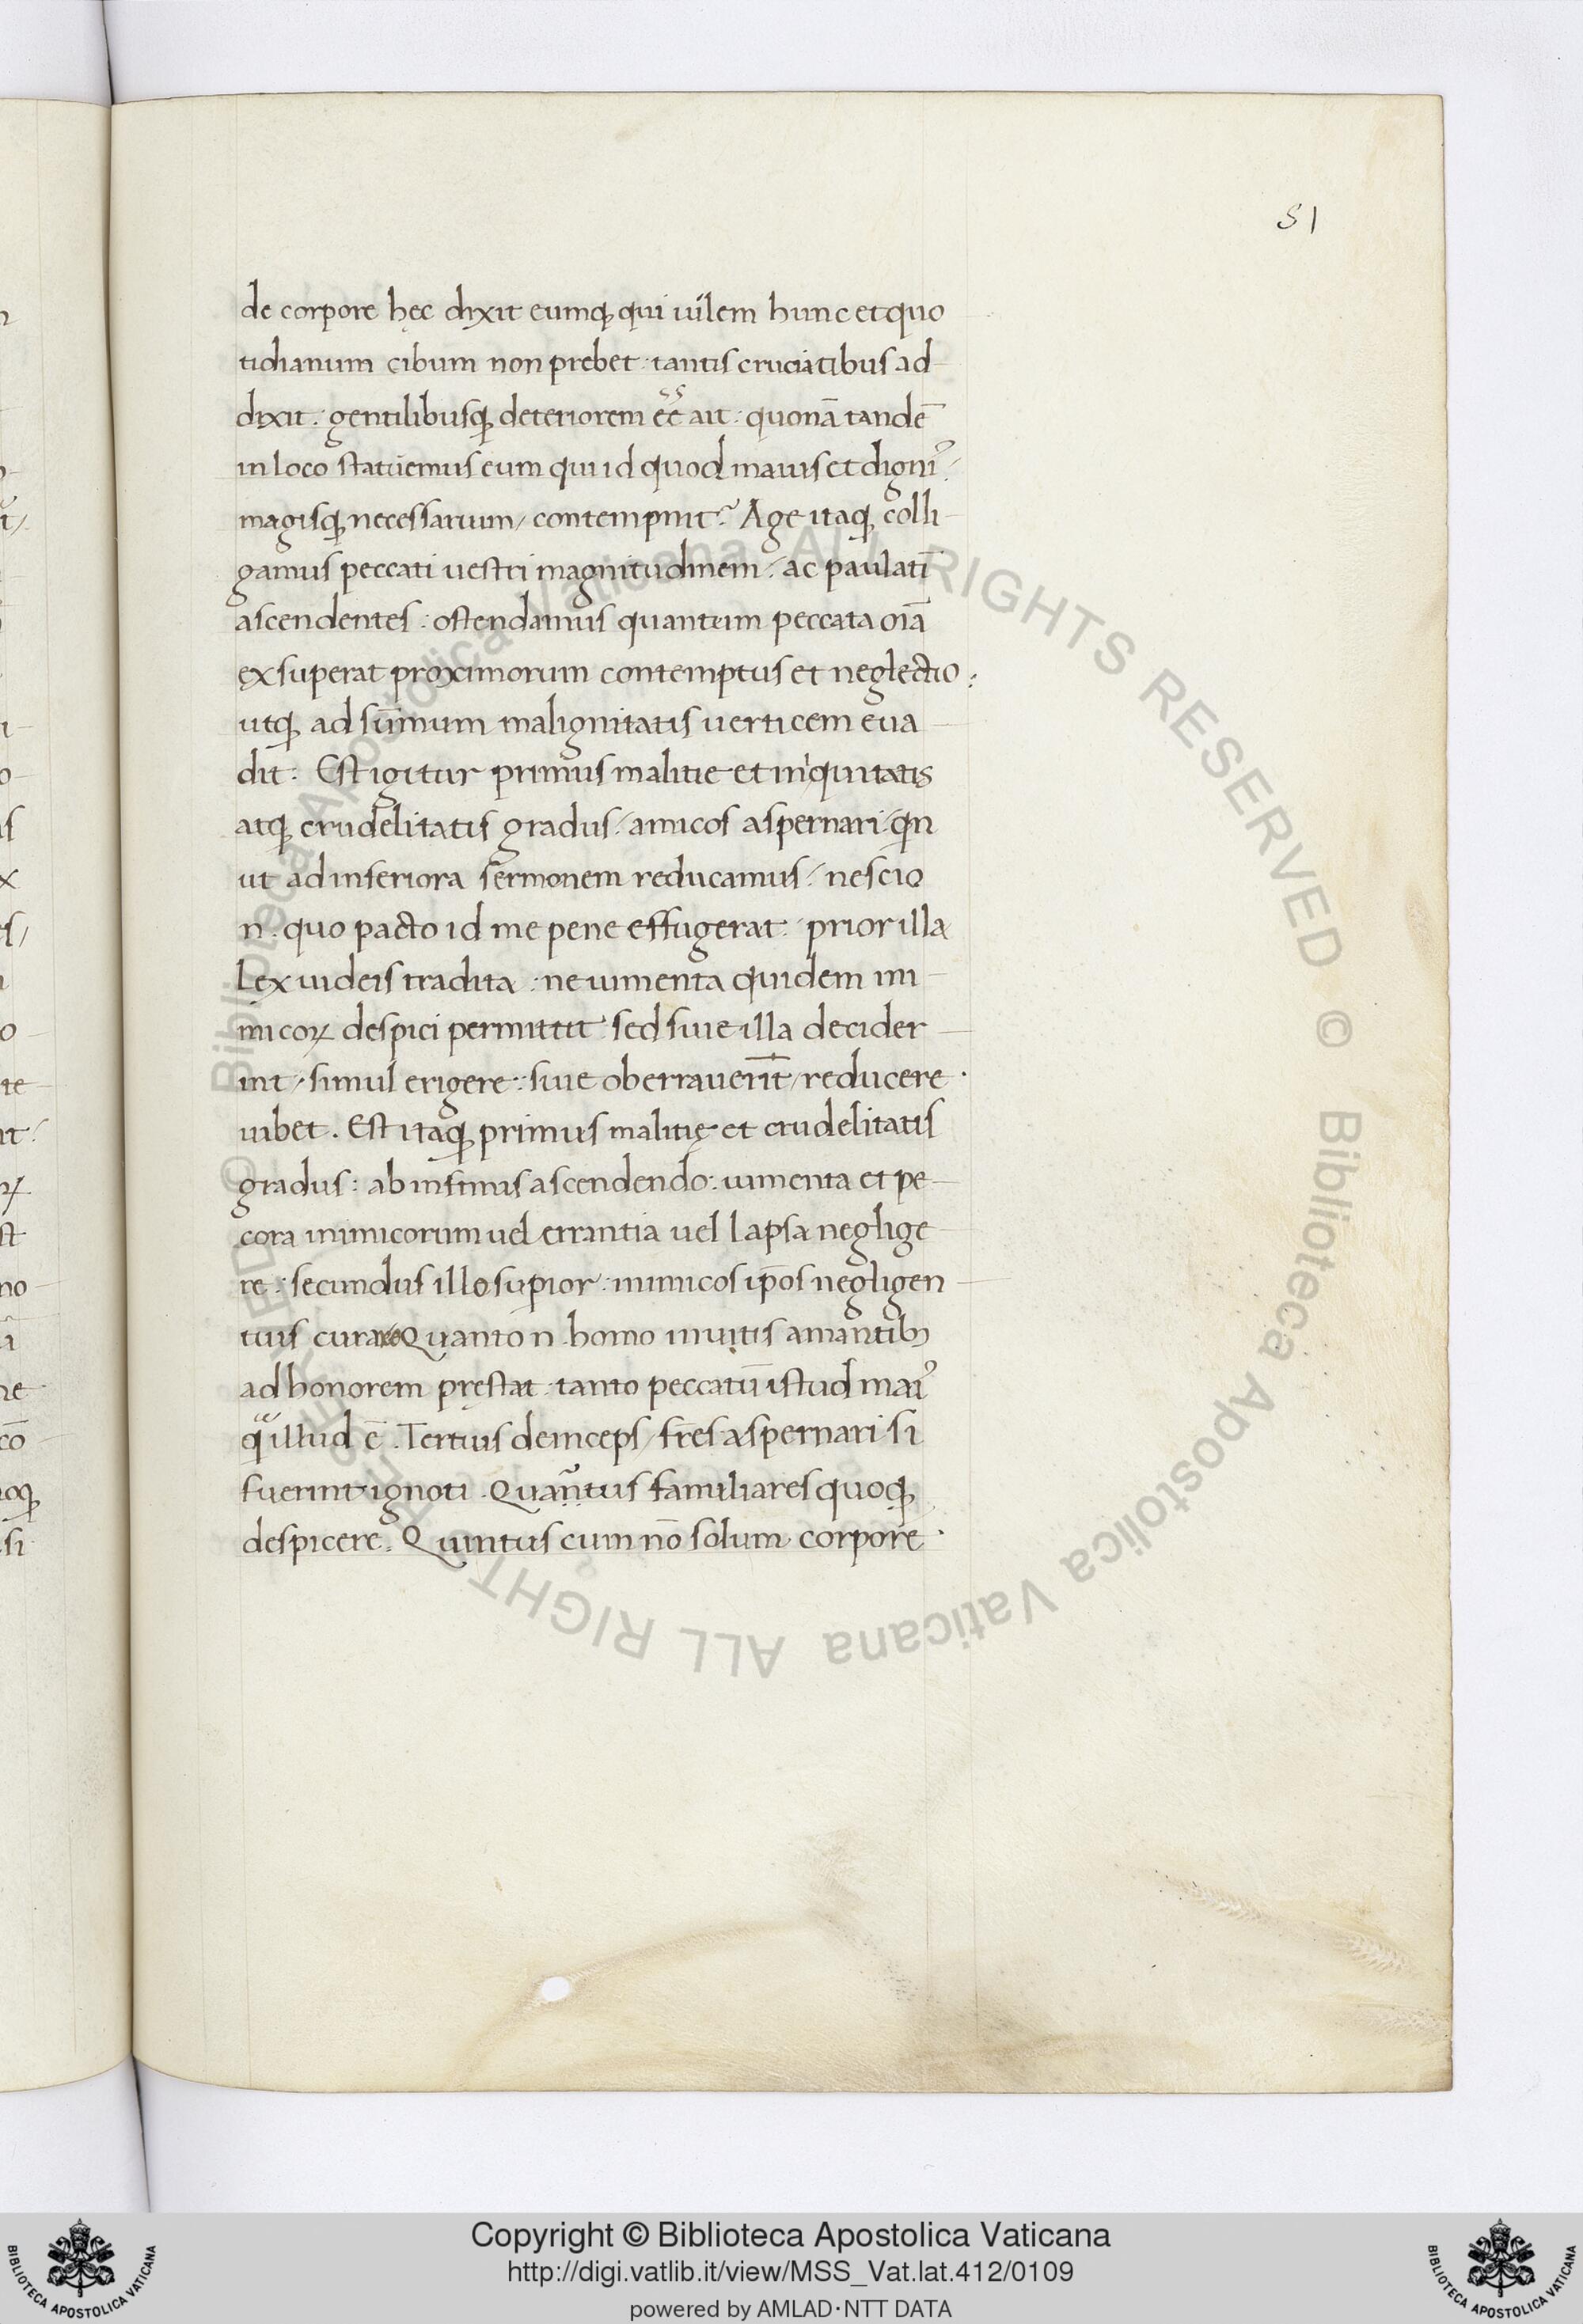 51
de corpore hęc dixit eumq; qui uilem hunc et quo
tidianum cibum non prebet : tantis cruciatibus ad
dixit : gentilibusq; deteriorem eē ait : quonā tandē
in loco statuemus eum qui id quod maius et digniꝰ /
magisq; necessarium / contempnit? Age itaq; colli
gamus peccati uestri magnitudinem / ac paulatī
ascendentes : ostendamus quantum peccata oīa
exsuperat proximorum contemptus et neglectio :
utq; ad sūmum malignitatis uerticem eua
dit : Est igitur primus malitie et iniquitatis
atq; crudelitatis gradus / amicos aspernari /
ut ad inferiora sermonem reducamus / nescio
n. quo pacto id me pene effugerat : prior illa
Lex iudeis tradita : ne iumenta quidem ini
micoꝝ despici permittit sed siue illa decider
int / simul erigere : siue oberrauerīt / reducere
iubet . Est itaq; primus malitię et crudelitatis
gradus : ab infimis ascendendo : iumenta et pe
cora inimicorum uel errantia uel lapsa neglige
re : secundus illo supior : inimicos ipōs negligen
tuis curare Quanto n. homo inuitis amantibꝫ
ad honorem pręstat : tanto peccatū istud maiꝰ
illud ē . Tertius deinceps / frēs aspernari si
fuerint ignoti . Quartus familiares quoq;
despicere . Quintus cum nō solum corpore
© Biblioteca Apostolica Vaticana ALL RIGHTS RESERVED © Biblioteca Apostolica Vaticana ALL RIGHTS RESERVED
BIBLIOTECA APOSTOLICA VATICANA
Copyright © Biblioteca Apostolica Vaticana
http://digi.vatlib.it/view/MSS_Vat.lat.412/0109
powered by AMLAD·NTT DATA
BIBLIOTECA APOSTOLICA VATICANA